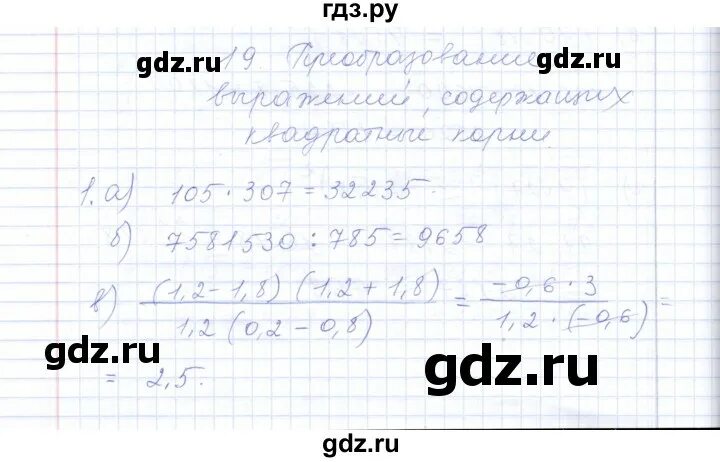 гдз.ру
gdz.ru gdz.ru
19. Преобразование
выражений, содержащих
квадратные корни.
gdz.ru gdz.ru
1. а) 105 · 307 = 32235.
б) 7581530 : 785 = 9658
gdz.ru gdz.ru
в) (1,2 – 1,8) (1,2 + 1,8) / 1,2 (0,2 – 0,8) = –0,6 · 3 / 1,2 · (–0,6) =
gdz.ru gdz.ru
= 2,5.
gdz.ru